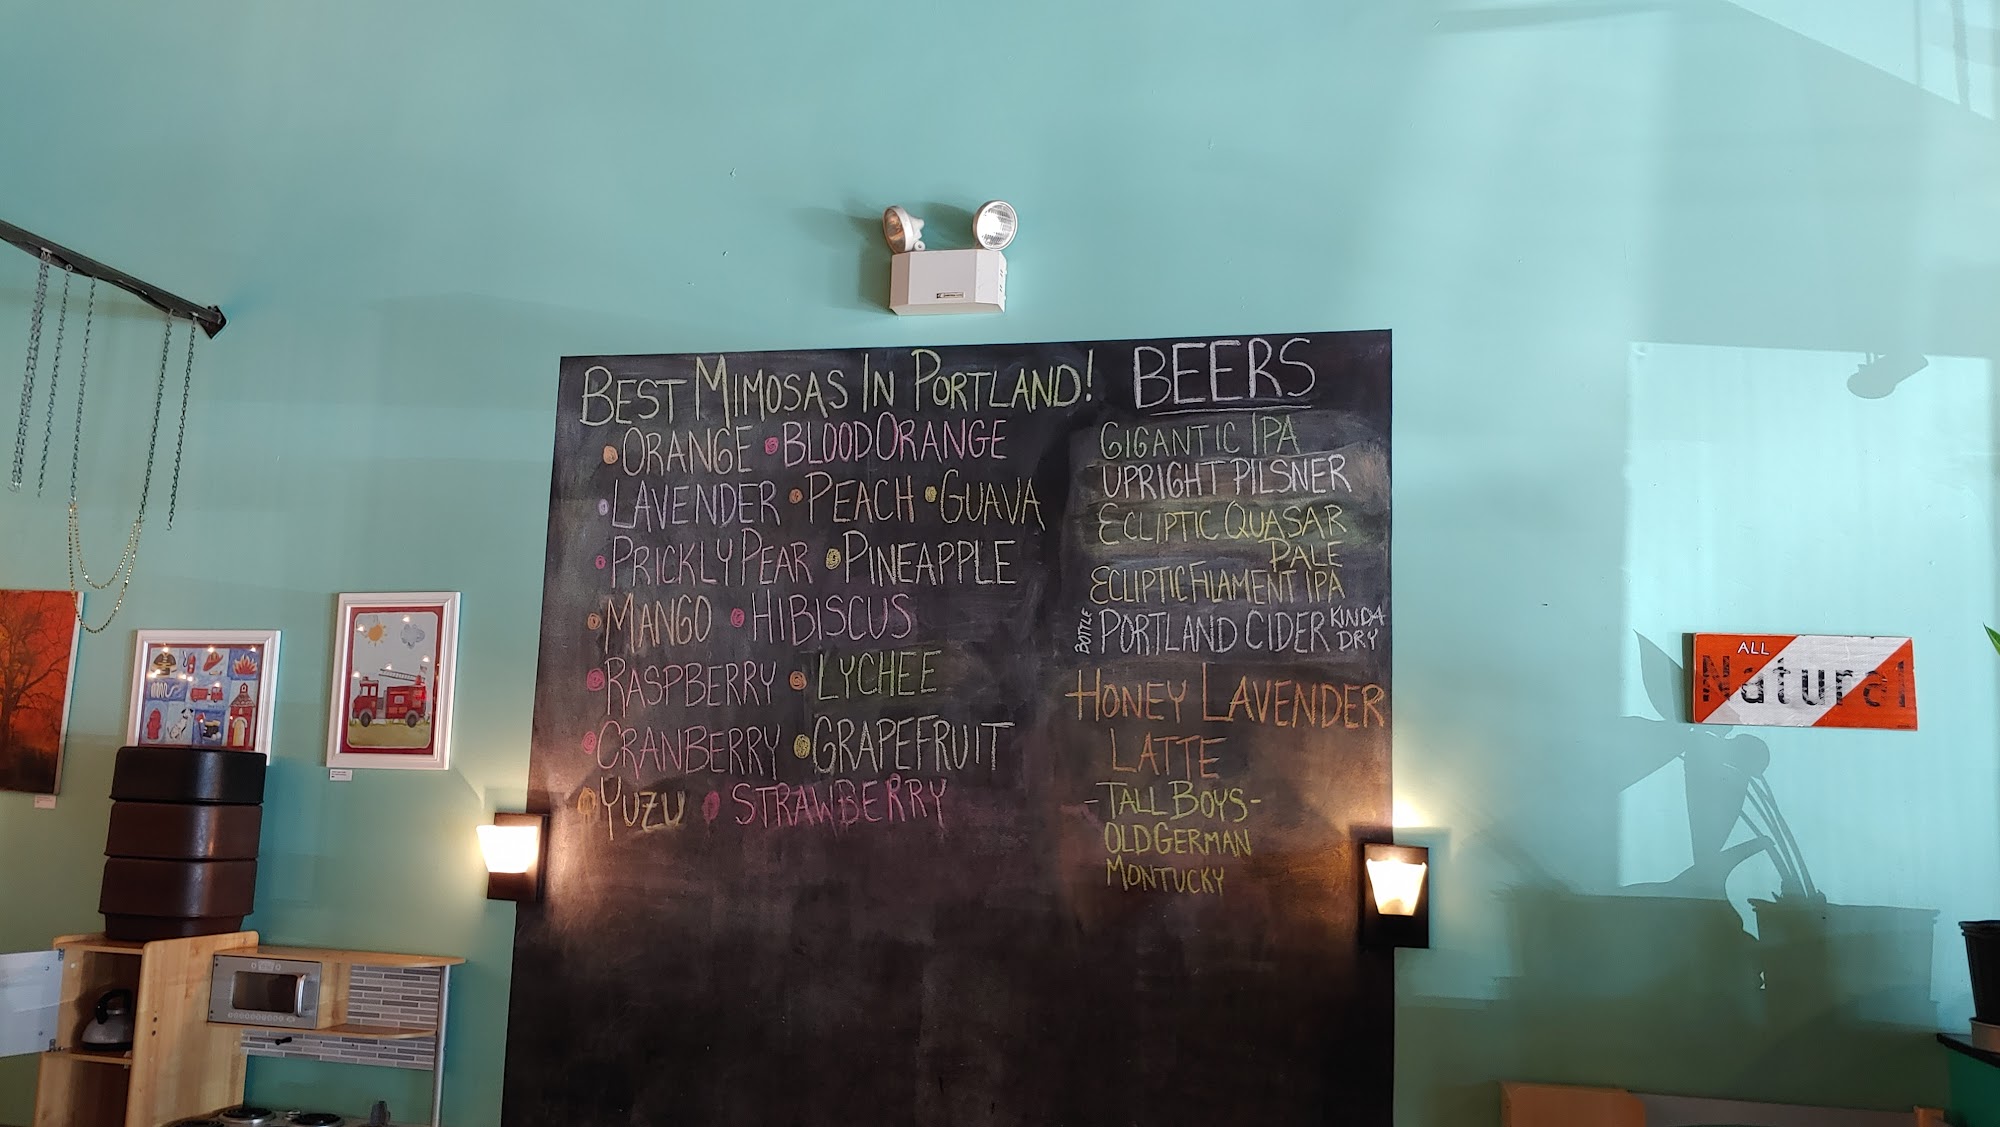 BEST MIMOSAS IN PORTLAND!
• ORANGE • BLOOD ORANGE
• LAVENDER • PEACH • GUAVA
• PRICKLY PEAR • PINEAPPLE
• MANGO • HIBISCUS
• RASPBERRY • LYCHEE
• CRANBERRY • GRAPEFRUIT
• YUZU • STRAWBERRY
BEERS
GIGANTIC IPA
UPRIGHT PILSNER
ECLIPTIC QUASAR
PALE
ECLIPTIC FILAMENT IPA
BOTTLE PORTLAND CIDER KINDA
DRY
HONEY LAVENDER
LATTE
-TALL BOYS-
OLD GERMAN
MONTUCKY
ALL
Natural